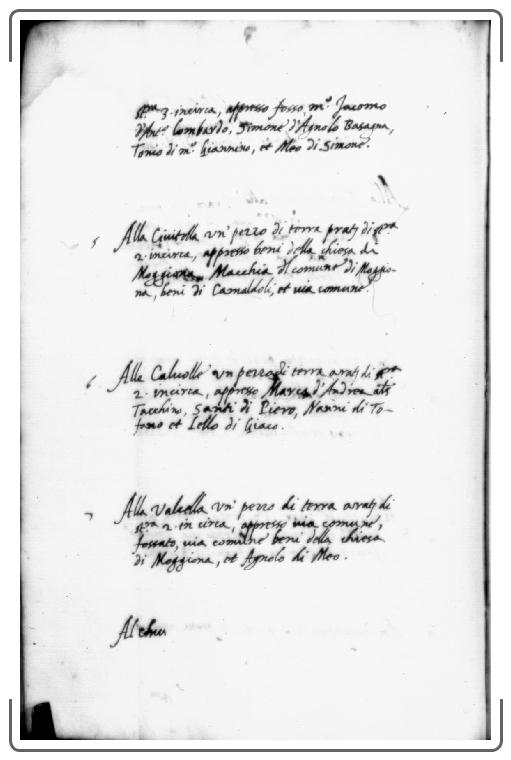 st.ra 3. incirca, appresso fosso, m.o Jacomo
d'Ant.o Lombardo, Simone d'Agnolo Basagna,
Tonio di m.o Giannino, et Meo di Simone.
5 Alla Civitella un' pezzo di terra pratj di st.ra
2. incirca, appresso beni della chiesa di
Moggiona, Macchia del comune di Moggio-
na, beni di Camaldoli, et via comune.
6 Alle Calvolle un pezzo di terra aratj di st.ra
2. incirca, appresso Marco d'Andrea als
Tacchino, Santi di Piero, Nanni di To-
fano et Lello di Giaco.
7 Alla Valcella un' pezzo di terra aratj di
st.ra 2. in circa, appresso via comune,
fossato, via comune beni della chiesa
di Moggiona, et Agnolo di Meo.
Al